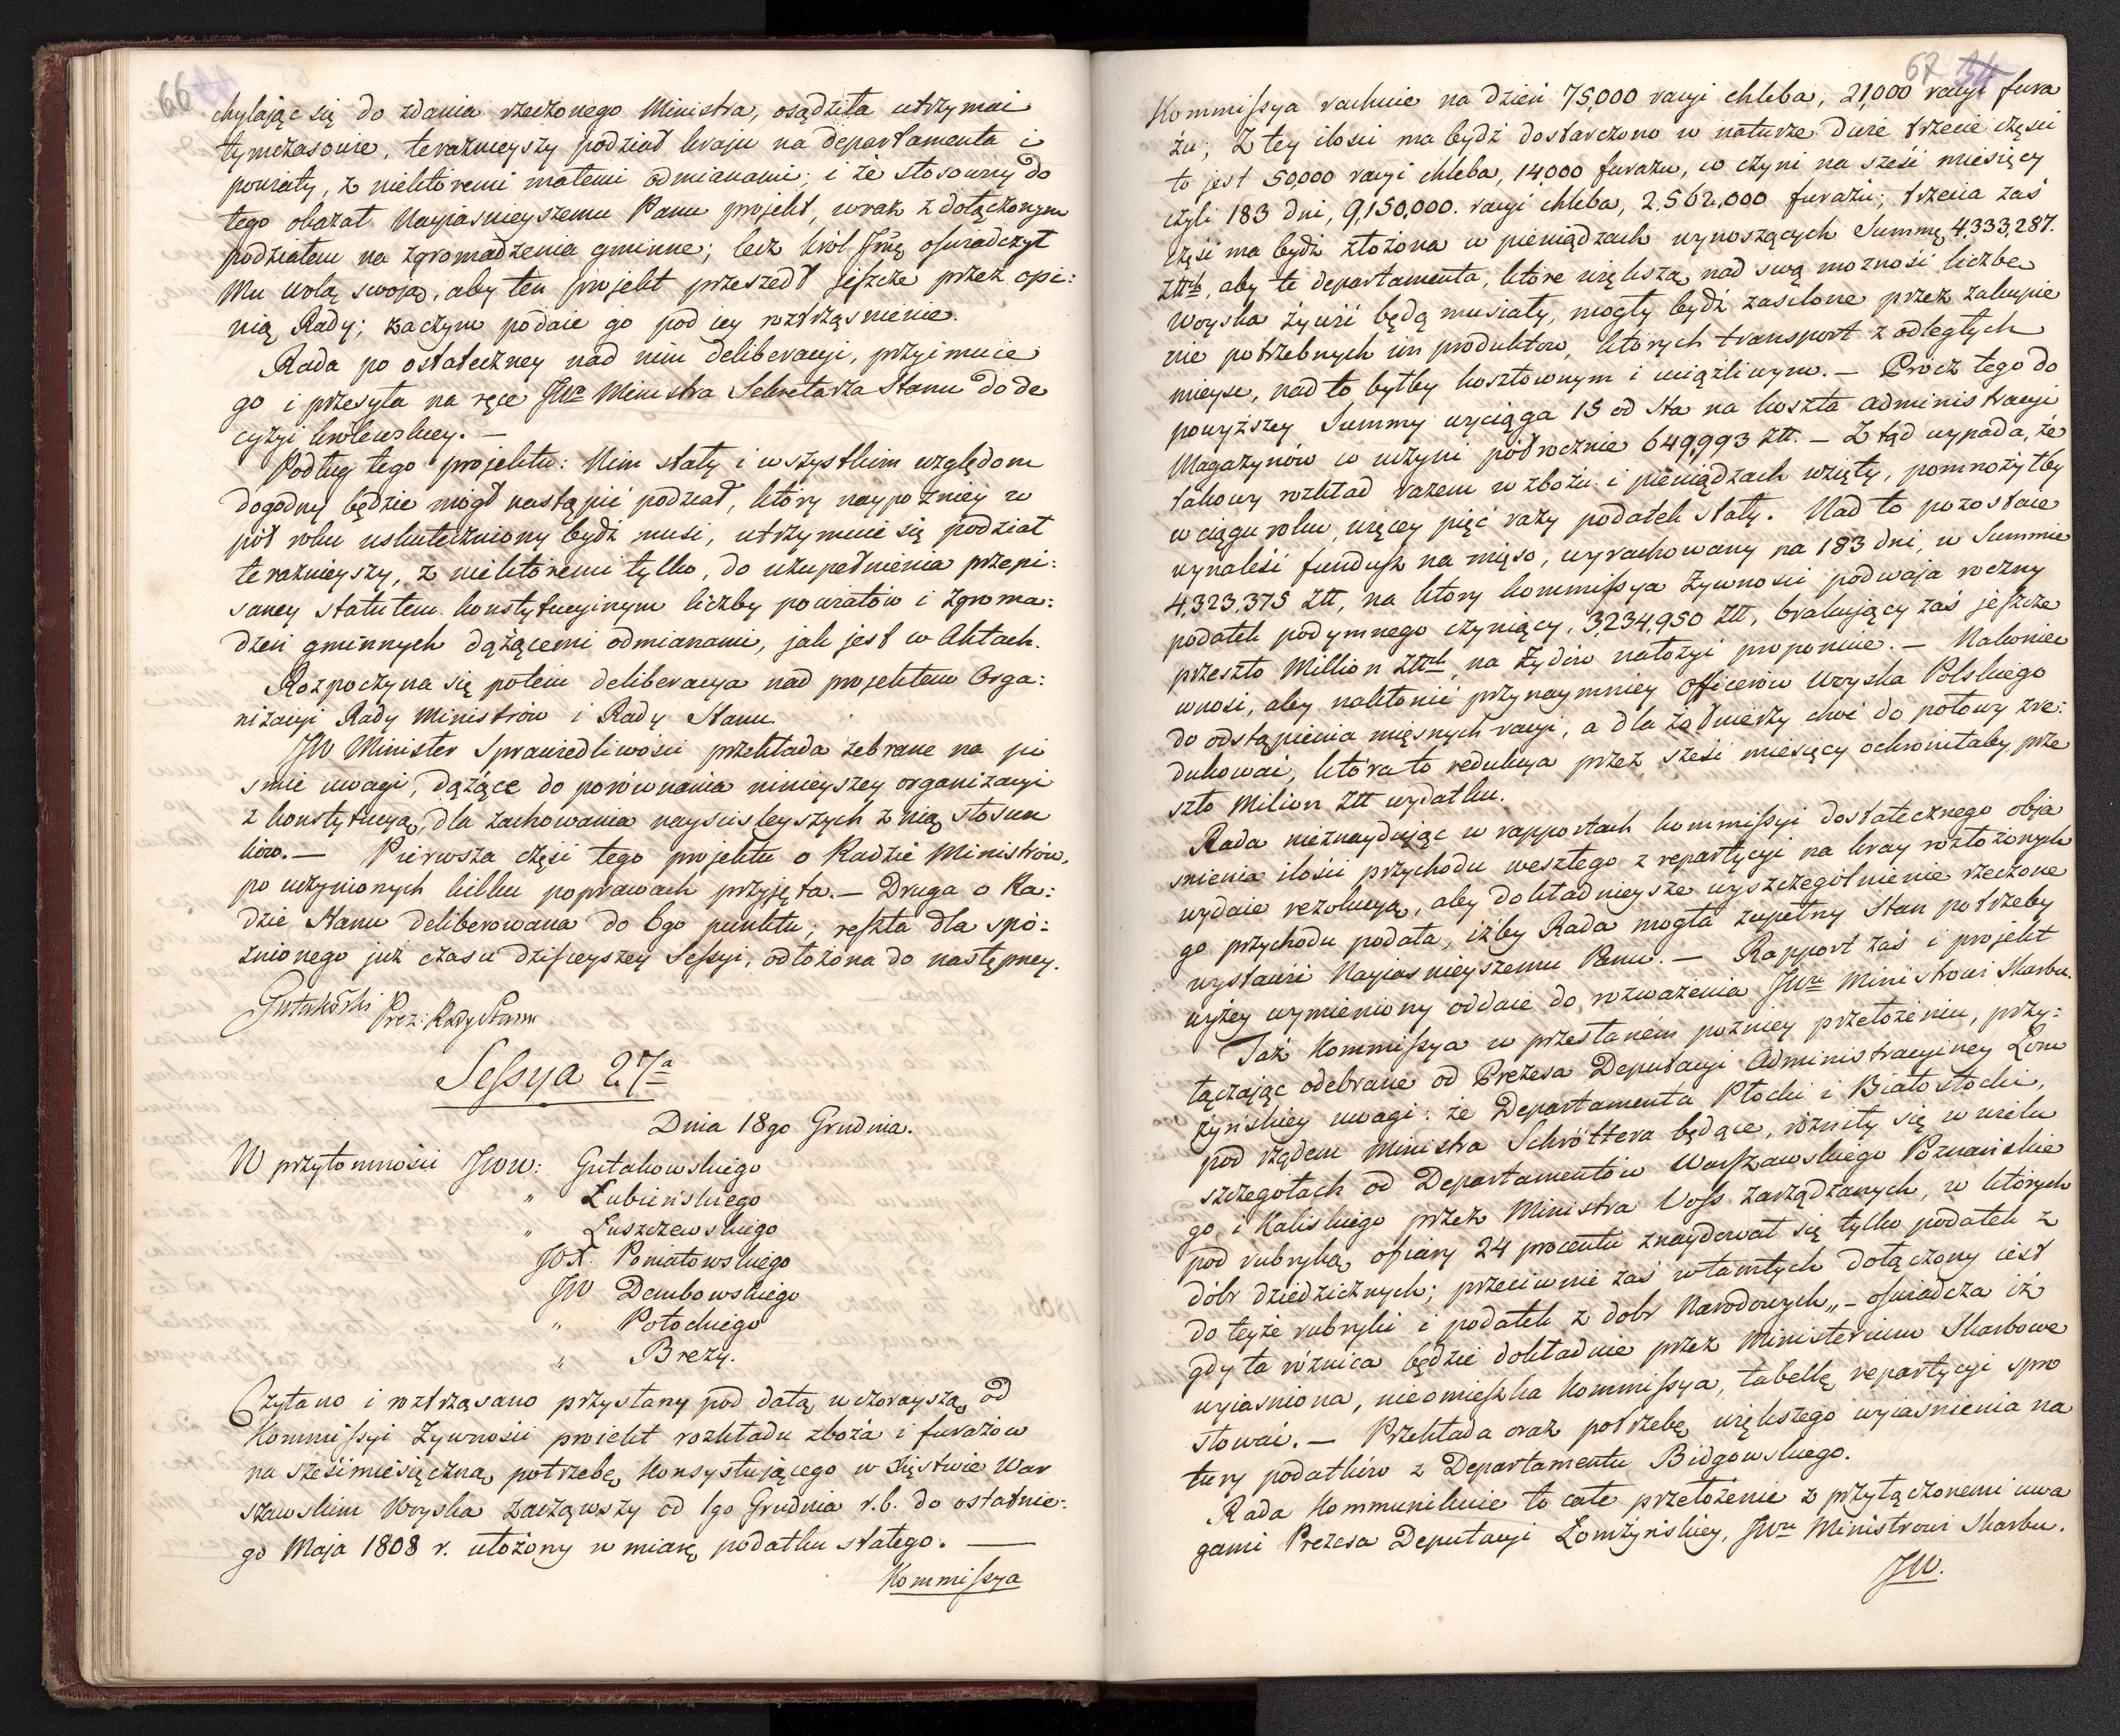 66
chylając się do zdania rzeczonego Ministra, osądziła utrzymać
tymczasowie, teraznieyszy podział kraju na departamenta i
powiaty, z niektóremi małemi odmianami; i że stosowny do
tego okazał Nayiasnieyszemu Panu projekt, wraz z dołączonym
podziałem na zgromadzenia gminne; lecz król Jmć oświadczył
Mu wolą swoją, aby ten projekt przeszedł jeszcze przez opi:
nią Rady; zaczym podaie go pod iey roztrząsnienie.
Rada po ostateczney nad nim deliberacyi, przyimuie
go i przesyła na ręce JWo Ministra Sekretarza Stanu do de
cyzyi królewskiey. —
Podług tego projektu: Nim stały i wszystkim względom
dogodny będzie mógł nastąpić podział, który naypozniey w
pół roku uskuteczniony bydź musi, utrzymuie się podział
teraznieyszy, z niektóremi tylko, do uzupełnienia przepi:
saney statutem konstytucyinym liczby powiatów i zgroma:
dzeń gminnych dążącemi odmianami, jak jest w Aktach.
Rozpoczyna się potem deliberacya nad projektem Orga:
nizacyi Rady Ministrów i Rady Stanu.
JW Minister Sprawiedliwości przekłada zebrane na pi
śmie uwagi, dążące do porównania ninieyszey organizacyi
z konstytucyą, dla zachowania nayscisleyszych z nią stosun
ków. — Pierwsza część tego projektu o Radzie Ministrów,
po uczynionych kilku poprawach przyjęta. — Druga o Ra:
dzie Stanu deliberowana do 6go punktu; reszta dla spó:
znionego już czasu dzisieyszey Sessyi, odłożona do następney.
Gutakowski Prez: Rady Stanu
Sessya 27a
Dnia 18go Grudnia.
W przytomności JWW: Gutakowskiego
" Łubieńskiego
" Łuszczewskiego
JOX. Poniatowskiego
JW Dembowskiego
" Potockiego
" Brezy.
Czytano i roztrząsano przysłany pod datą wczorayszą od
Kommissyi Żywności projekt rozkładu zboża i furażów
na sześćmiesięczną potrzebę konsystującego w Xięstwie War
szawskim Woyska zacząwszy od 1go Grudnia r.b. do ostatnie:
go Maja 1808 r. ułożony w miarę podatku stałego. —
Kommissya
67 34
Kommissya rachuie na dzień 75,000 racyi chleba, 21,000 racyi fura
żu; Z tey ilosci ma bydź dostarczono w naturze dwie trzecie części
to jest 50,000 racyi chleba, 14,000 furażu, co czyni na sześć miesięcy
czyli 183 dni, 9,150,000. racyi chleba, 2,562,000 furażu; trzecia zaś
część ma bydź złożona w pieniądzach wynoszących Summę 4,333,287.
złłch, aby te departamenta, które większą nad swą możność liczbę
Woyska żywić będą musiały, mogły bydź zasilone przez zakupie
nie potrzebnych im produktów, których transport z odległych
mieysc, nadto byłby kosztownym i uciążliwym. — Prócz tego do
powyższey Summy wyciąga 15 od sta na koszta administracyi
Magazynów co uczyni półrocznie 649,993 złł. — Ztąd wypada, że
takowy rozkład razem w zbożu i pieniądzach wzięty, pomnożyłby
w ciągu roku więcey pięć razy podatek stały. Nad to pozostaie
wynaleść fundusz na mięso, wyrachowany na 183 dni, w Summie
4,323,375 złł, na który kommissya żywności podwaja roczny
podatek podymnego czyniący, 3,234,950 złł, brakujący zaś jeszcze
przeszło Million złłch, na Żydów nałożyć proponuie. — Nakoniec
wnosi, aby nakłonić przynaymniey officerów Woyska Polskiego
do odstąpienia mięsnych racyi, a dla żołnierzy choć do połowy zre:
dukować, która to redukcya przez sześć miesięcy ochroniłaby prze
szło Milion złł wydatku.
Rada nieznayduiąc w rapportach kommissyi dostatecznego obja
snienia ilości przychodu weszłego z repartycyi na kray rozłożonych
wydaie rezolucyą, aby dokładnieysze wyszczególnienie rzeczone
go przychodu podała, iżby Rada mogła zupełny Stan potrzeby
wystawić Nayiasnieyszemu Panu. — Rapport zaś i projekt
wyżey wymieniony oddaie do rozważenia JWu Ministrowi Skarbu.
Taż Kommissya w przesłaném pozniey przełożeniu, przy:
łączając odebrane od Prezesa Deputacyi Administracyiney Łom
żyńskiey uwagi: że Departamenta Płocki i Białostocki,
pod rządem Ministra Schröttera będące, różniły się w wielu
szczegołach od Departamentów Warszawskiego Poznańskie
go i Kaliskiego przez Ministra Voss zarządzanych, w których
pod rubryką ofiary 24 procentu znaydował się tylko podatek z
dóbr dziedzicznych; przeciwnie zaś w tamtych dołączony iest
do teyże rubryki i podatek z dobr Narodowych„ — oświadcza iż
gdy ta różnica będzie dokładnie przez Ministerium Skarbowe
wyiasniona, nieomieszka Kommissya, tabellę repartycyi spro
stować. — Przekłada oraz potrzebę większego wyiasnienia na
tury podatków z Departamentu Bidgowskiego.
Rada Kommunikuie to całe przełożenie z przyłączonemi uwa
gami Prezesa Deputacyi Łomżyńskiey, JWu Ministrowi Skarbu.
JW.